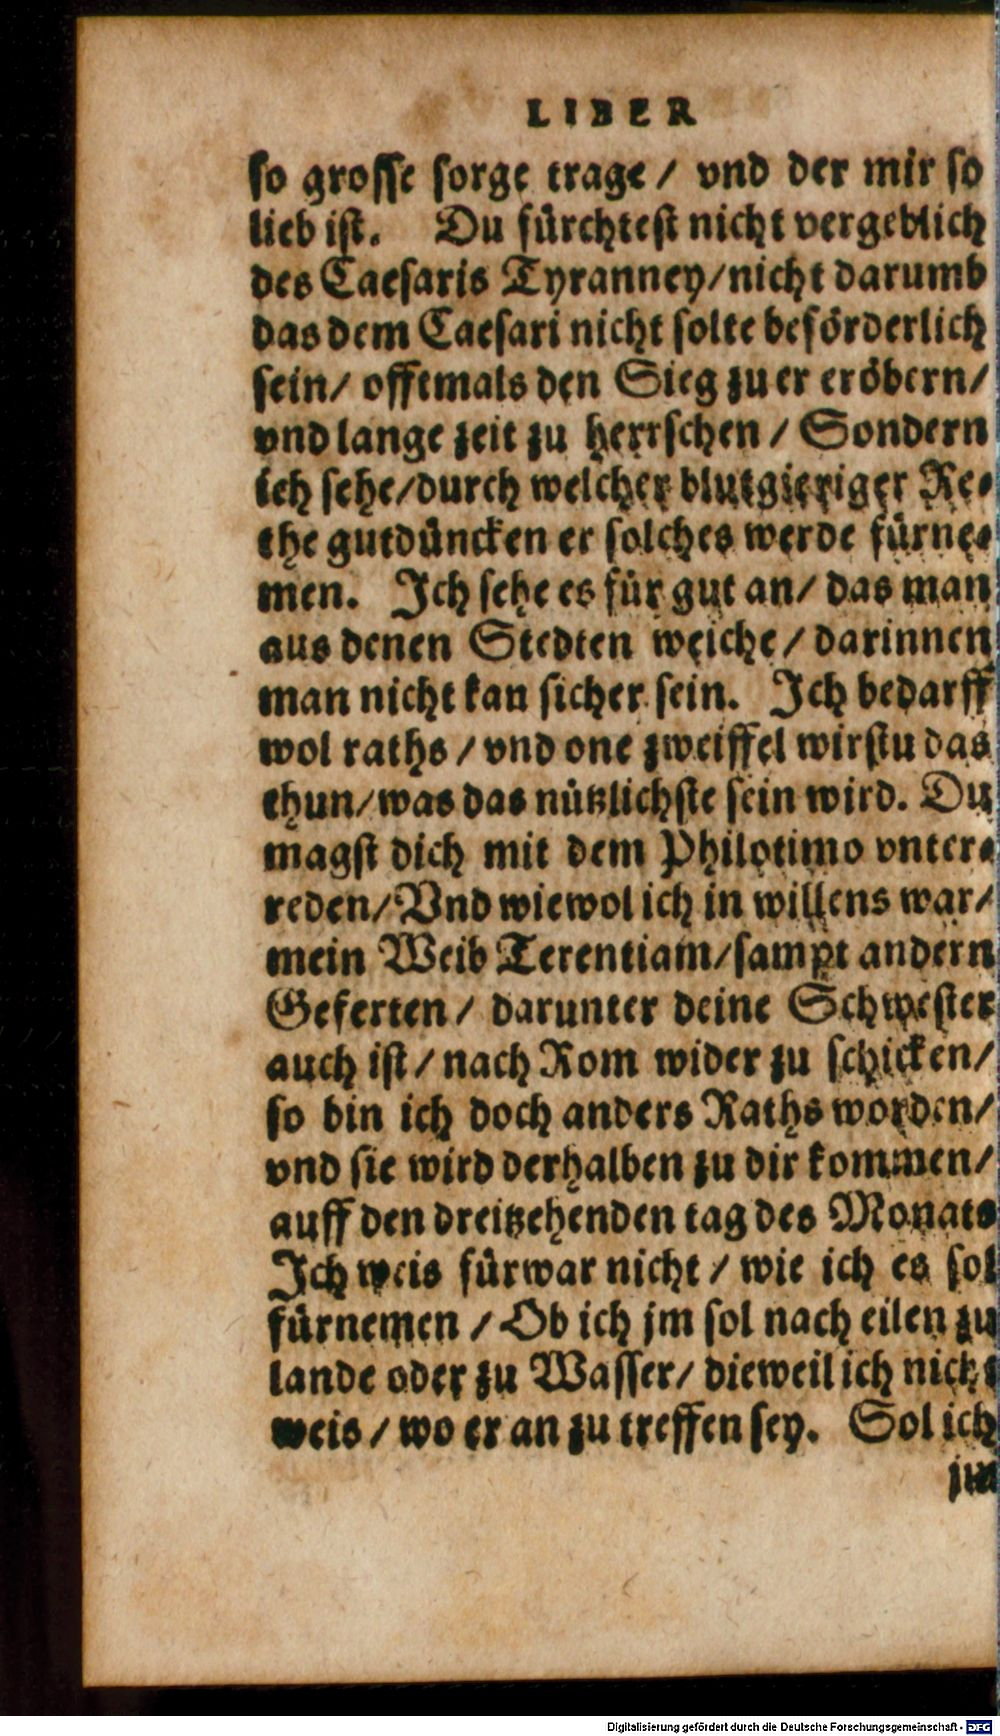 LIBER
so grosse sorge trage / vnd der mir so
lieb ist. Du fürchtest nicht vergeblich
des Caesaris Tyranney/nicht darumb
das dem Caesari nicht solte beförderlich
sein/ offtmals den Sieg zu er eröbern/
vnd lange zeit zu herrschen / Sondern
ich sehe/durch welcher blutgieriger Re-
the gutdüncken er solches werde fürne-
men. Ich sehe es für gut an/ das man
aus denen Stedten weiche / darinnen
man nicht kan sicher sein. Ich bedarff
wol raths / vnd one zweiffel wirstu das
thun/was das nützlichste sein wird. Du
magst dich mit dem Philotimo vnter-
reden/Vnd wiewol ich in willens war/
mein Weib Terentiam/sampt andern
Geferten / darunter deine Schwester
auch ist / nach Rom wider zu schicken/
so bin ich doch anders Raths worden/
vnd sie wird derhalben zu dir kommen/
auff den dreitzehenden tag des Monats
Ich weis fürwar nicht / wie ich es sol
fürnemen / Ob ich jm sol nach eilen zu
lande oder zu Wasser/ dieweil ich nicht
weis / wo er an zu treffen sey. Sol ich
jm
Digitalisierung gefördert durch die Deutsche Forschungsgemeinschaft - DFG